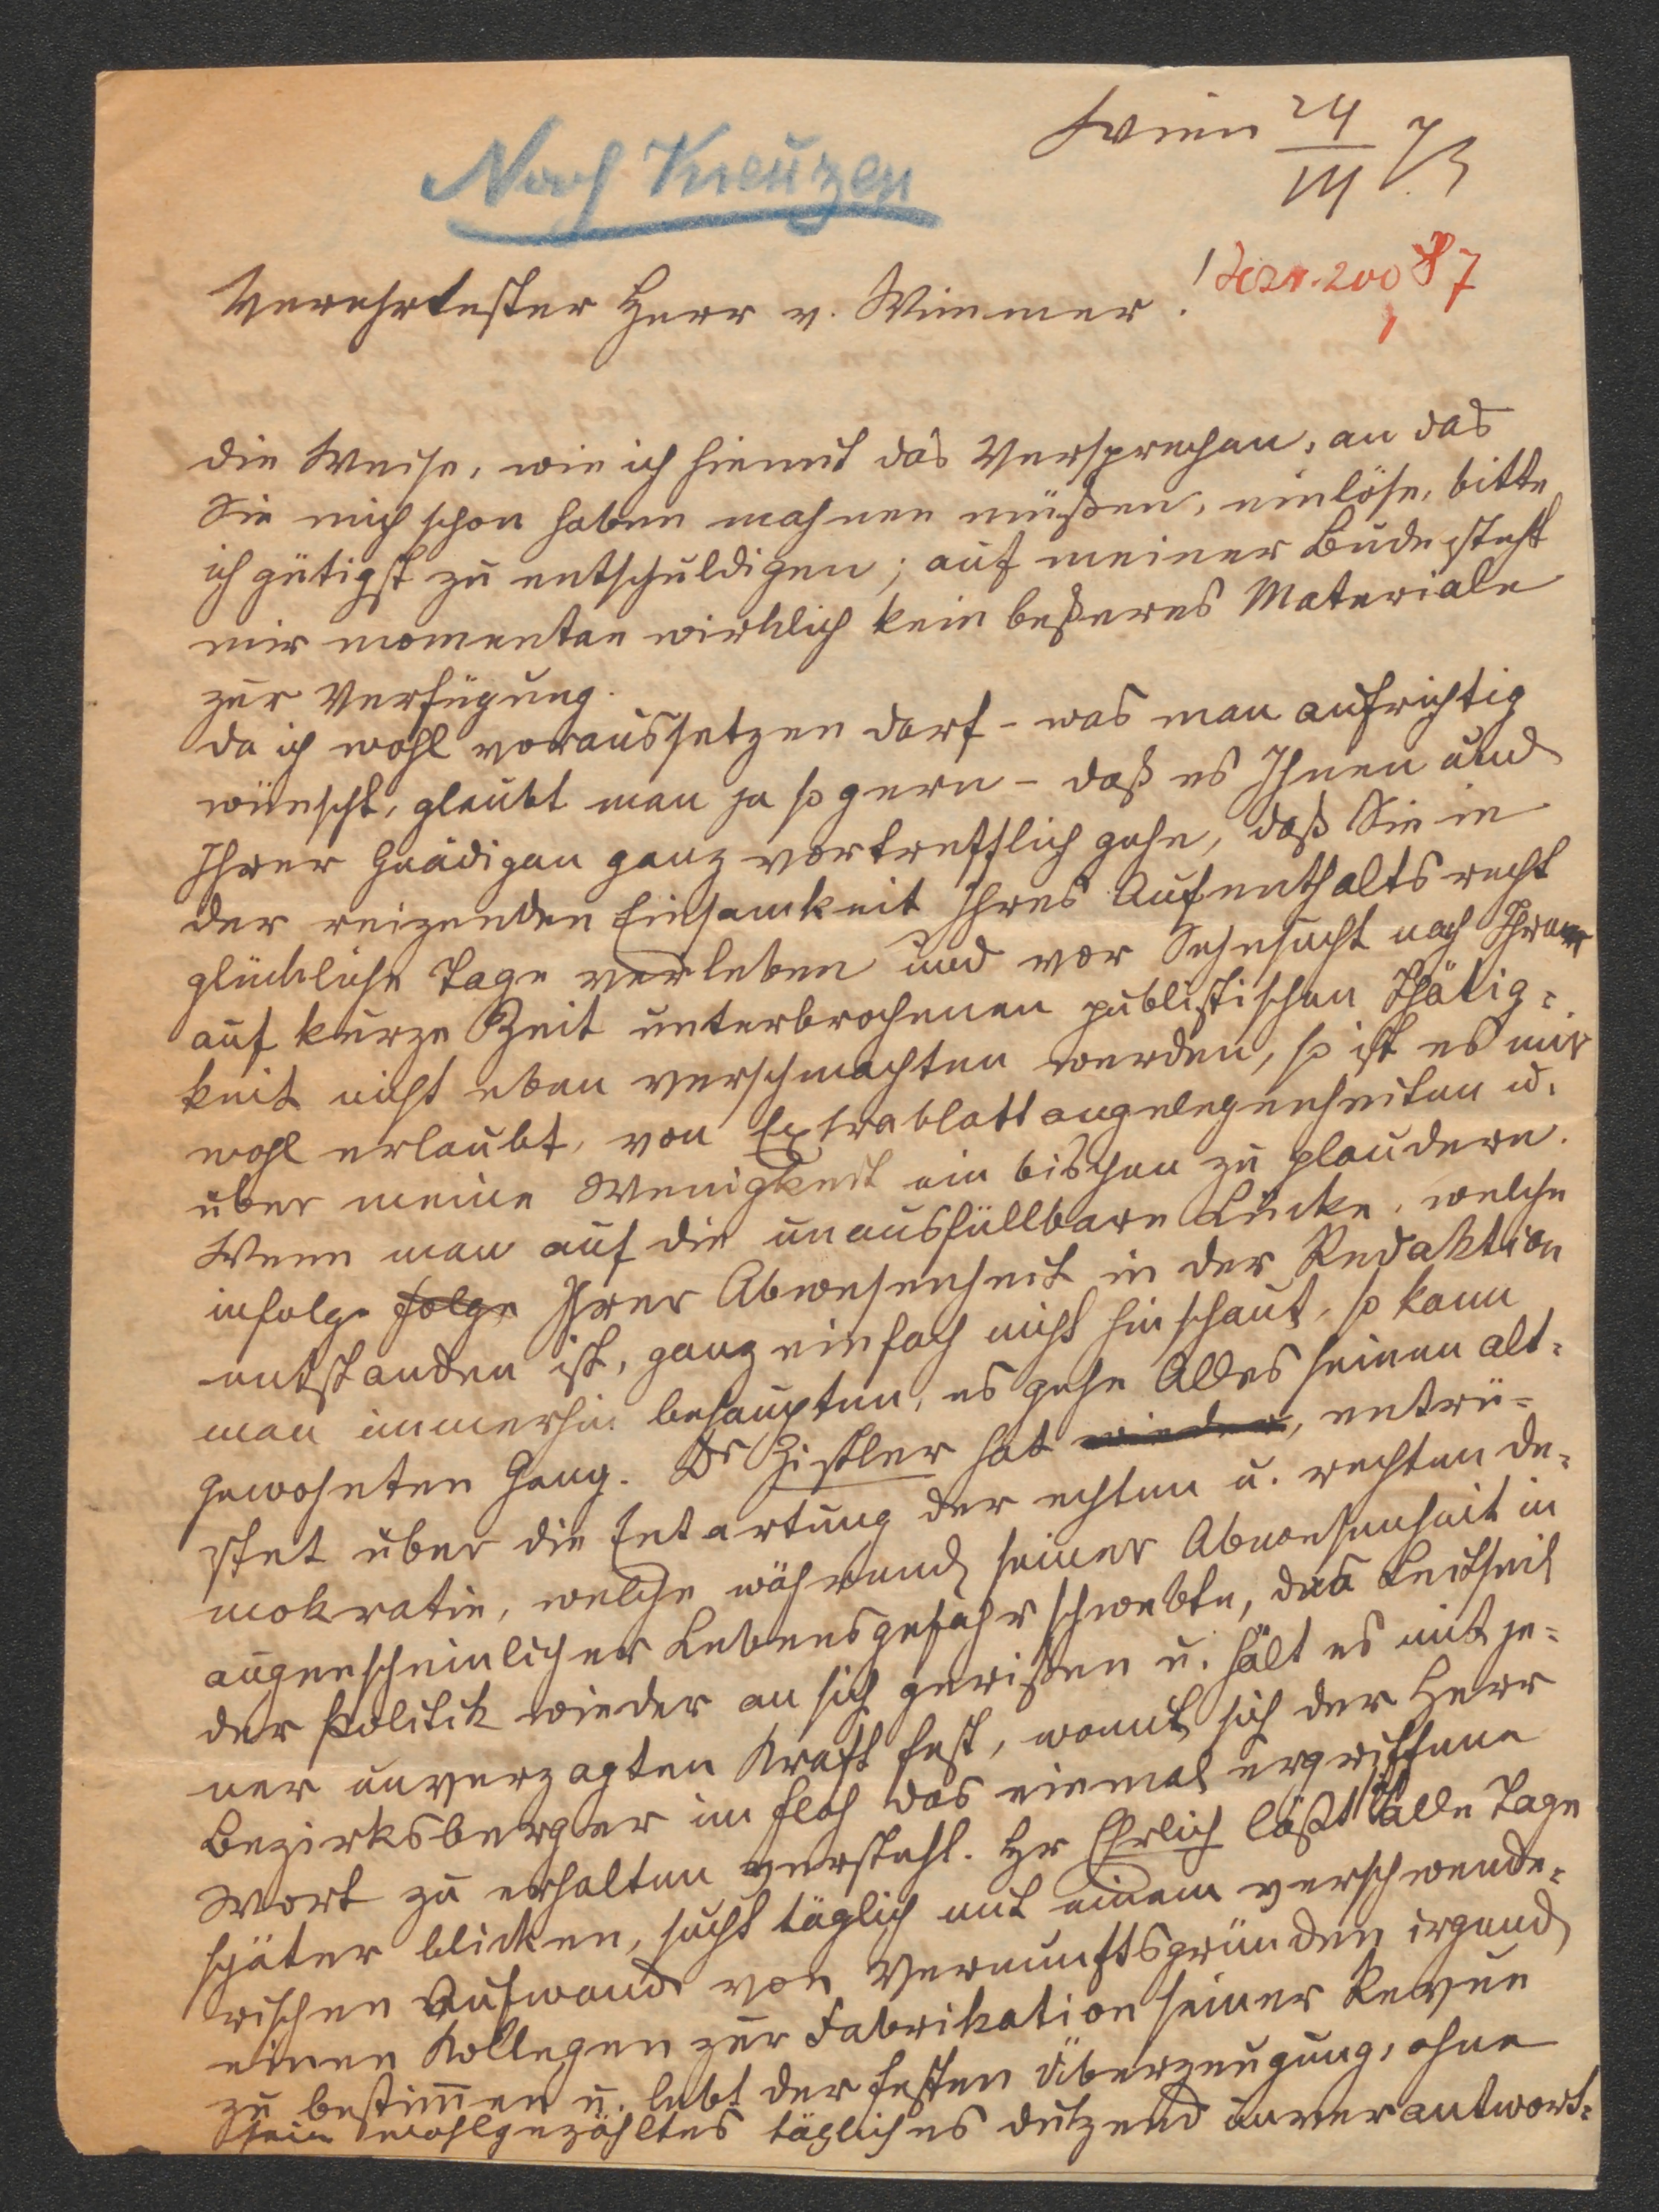 Wien 24/III 73
Nach Kreuzen
Verehrtester Herr v. Wimmer!
die Weise, wie ich hiemit das Versprechen, an das
Sie mich schon haben mahnen müßen, einlöse, bitte
ich gütigst zu entschuldigen; auf meiner Bude steht
mir momentan wirklich kein beßeres Materiale
zur Verfügung.
Da ich wohl voraussetzen darf - was man aufrichtig
wünscht, glaubt man ja so gern - daß es Ihnen und
Ihrer Gnädigen ganz vortrefflich gehe, daß Sie in
der reizenden Einsamkeit Ihres Aufenthalts recht
glückliche Tage verleben und vor Sehnsucht nach Ihrer
auf kurze Zeit unterbrochenen publistischen Thätig=
keit nicht eben verschmachten werden, so ist es mir
wohl erlaubt, von Extrablattangelegenheiten u.
über meine Wenigkeit ein bischen zu plaudern.
Wenn man auf die unausfüllbare Lücke, welche
infolge folge Ihrer Abwesenheit in der Redaktion
entstanden ist, ganz einfach nicht hinschaut, so kann
man immerhin behaupten, es gehe Alles seinen alt=
gewohnten Gang. Dr Zistler hat wieder, entrü=
stet über die Entartung der echten u. rechten De=
mokratie, welche während seiner Abwesenheit in
augenscheinlicher Lebensgefahr schwebte, das Leitseil
der Politik wieder an sich gerißen u. hält es mit je=
ner unverzagten Kraft fest, womit sich der Herr
Bezirksberger im Floh das einmal ergriffene
Wort zu erhalten versteht. Hr Ehrlich läßt sich alle Tage
später blicken, sucht täglich mit einem verschwende=
rischen Aufwande von Vernunftsgründen irgend
einen Kollegen zur Fabrikation seiner Revue
zu bestim̄en u. lebt der festen Überzeugung, ohne
sein wohlgezähltes tägliches Dutzend unverantwort=